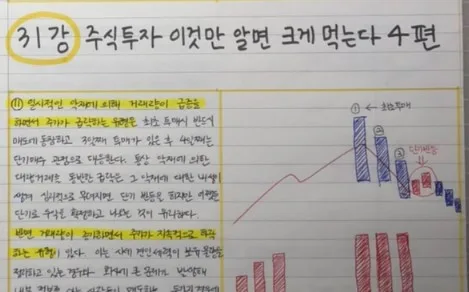 31강 주식투자 이것만 알면 크게 먹는다 4편
⑪ 일시적인 악재에 의해 거래량이 급증을
하면서 주가가 급락하는 유형은 최초 투매시 반드시
매도에 동참하고 3일째 투매가 있은 후 4일째는
단기매수 관점으로 대응한다. 통상 악재에 의한
대량거래를 동반한 급락은 그 악재에 대한 내성이
생겨 일시적으로 단기 반등을 하지만 이때를
단기로 수익을 나오는 것이 유리하다.
반면 거래량이 증가하면서 주가가 지속적으로 하락
하는 유형이 있다. 이는 사례 보유 물량을
정리하고 있는 회사에 큰 문제가
① ← 최초투매
②
③
단기반등